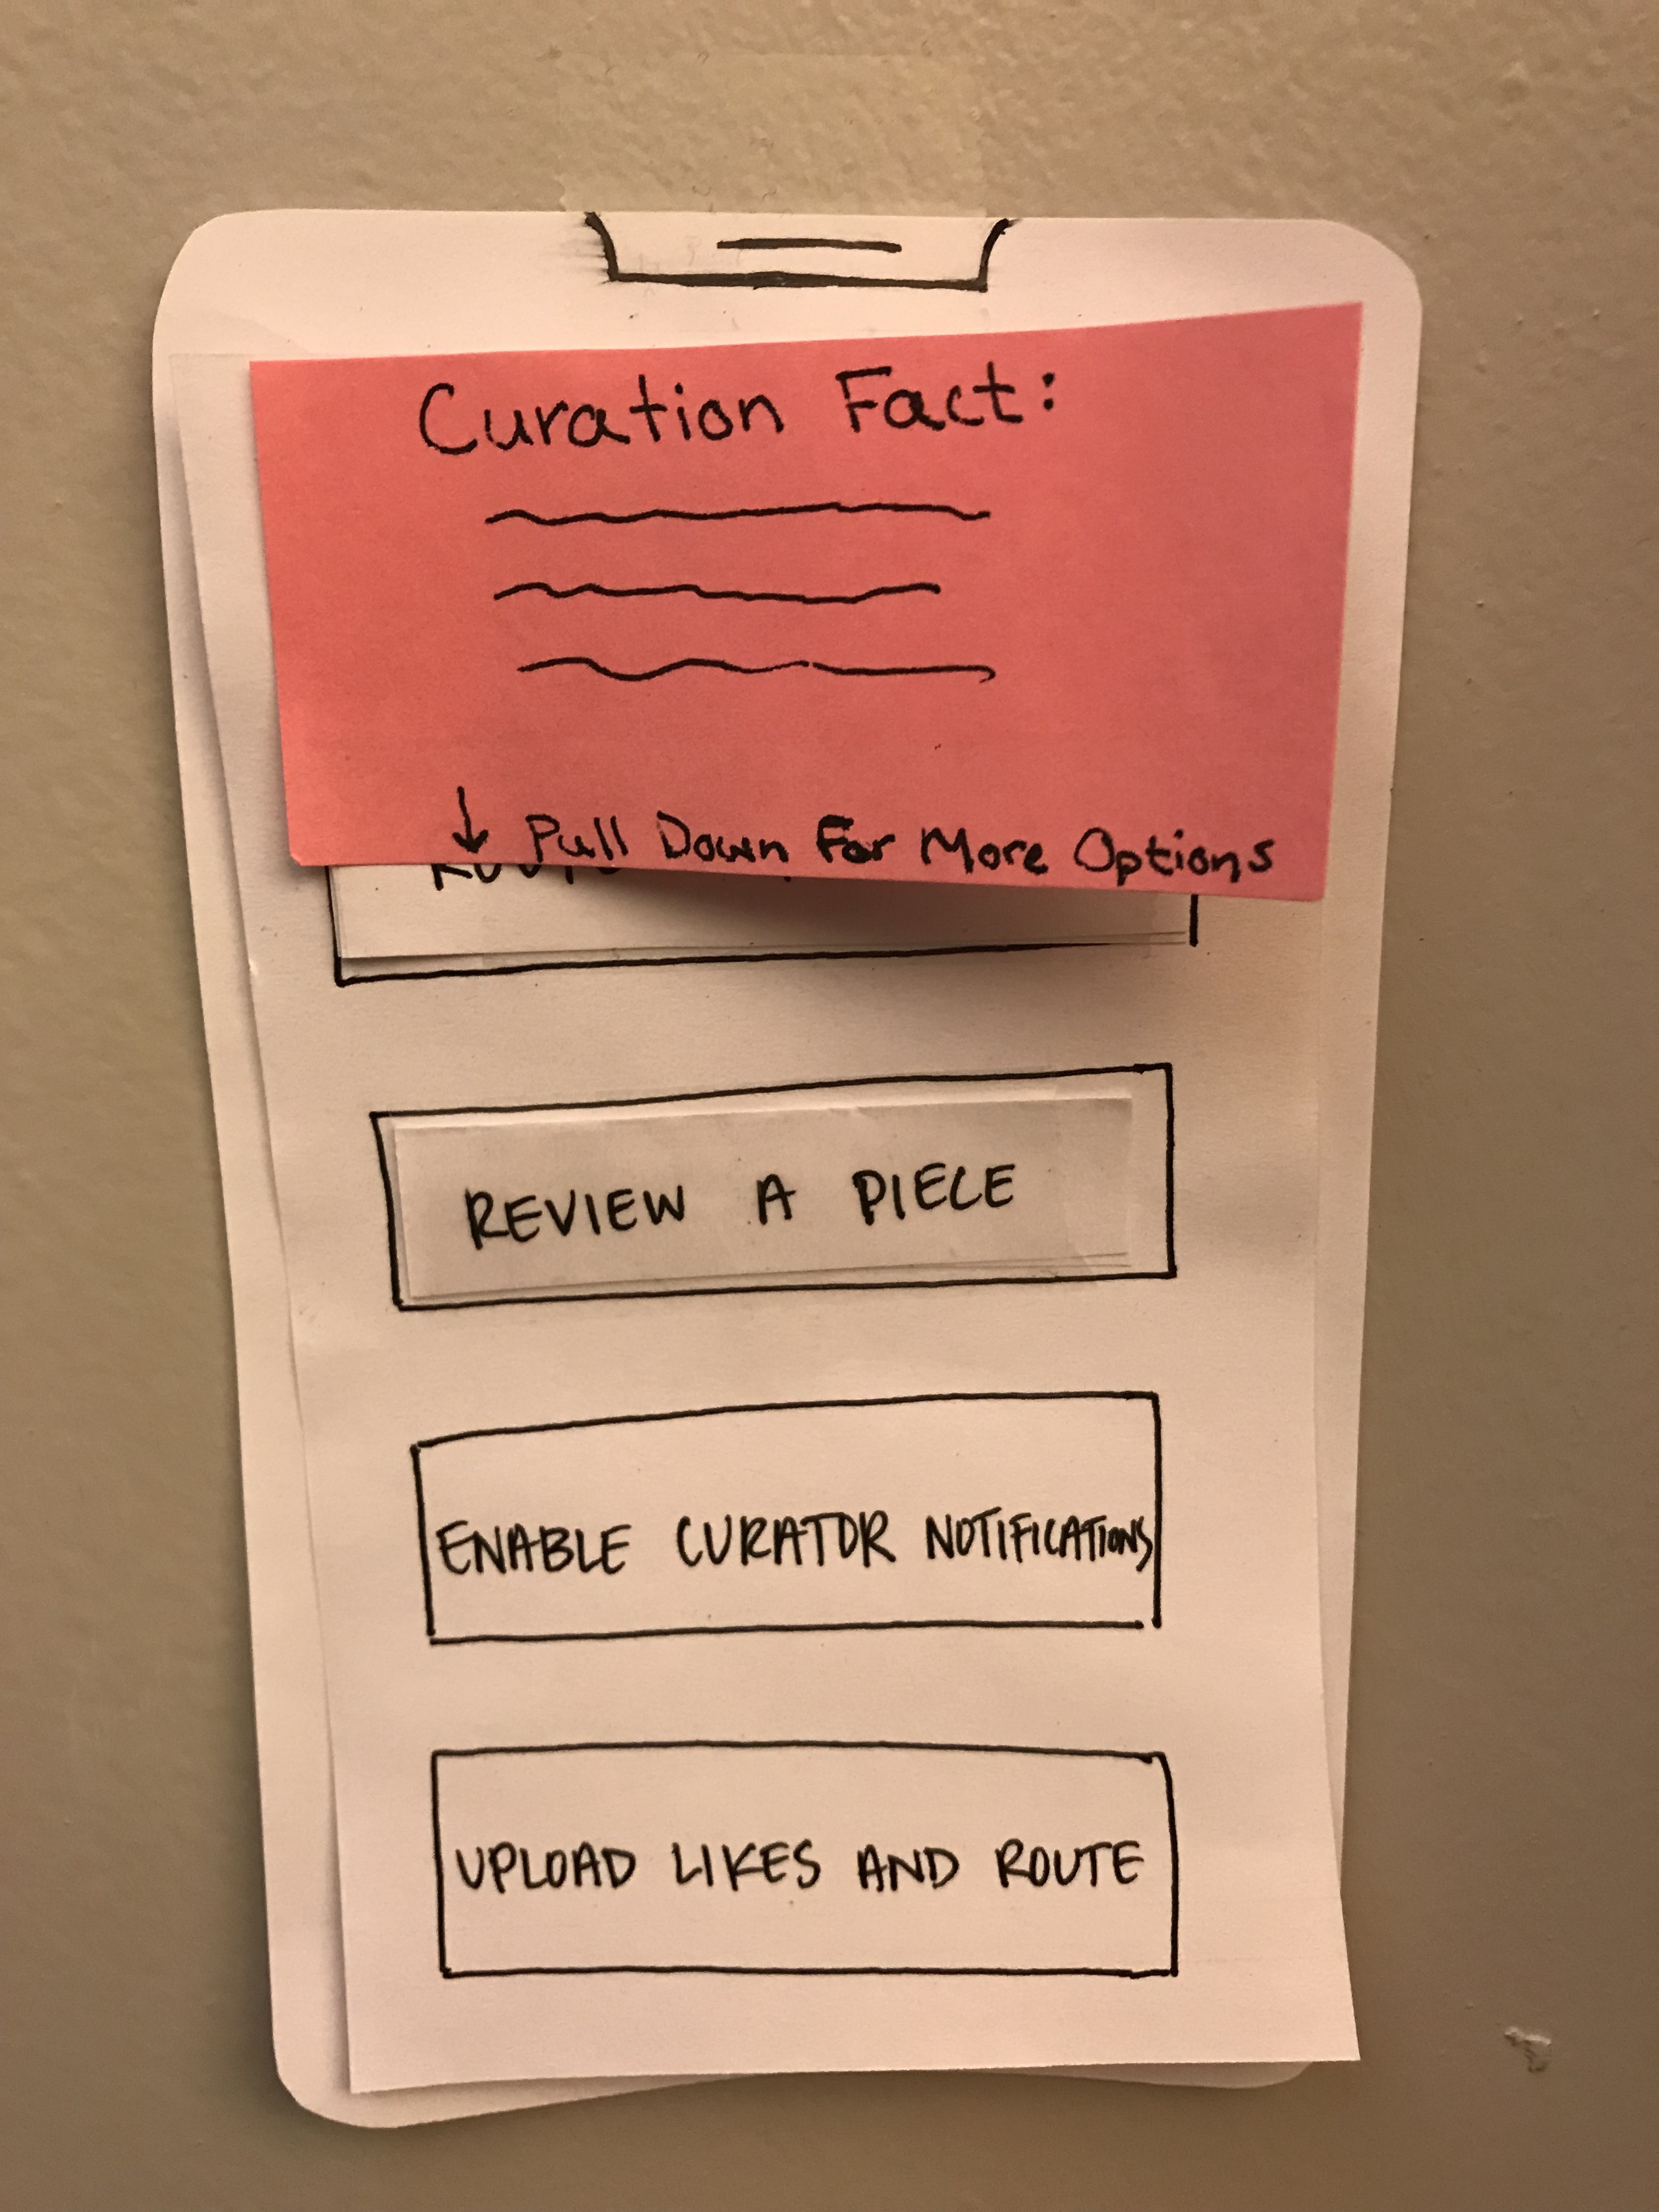 Curation Fact:
↓ Pull Down For More Options
REVIEW A PIECE
ENABLE CURATOR NOTIFICATIONS
UPLOAD LIKES AND ROUTE